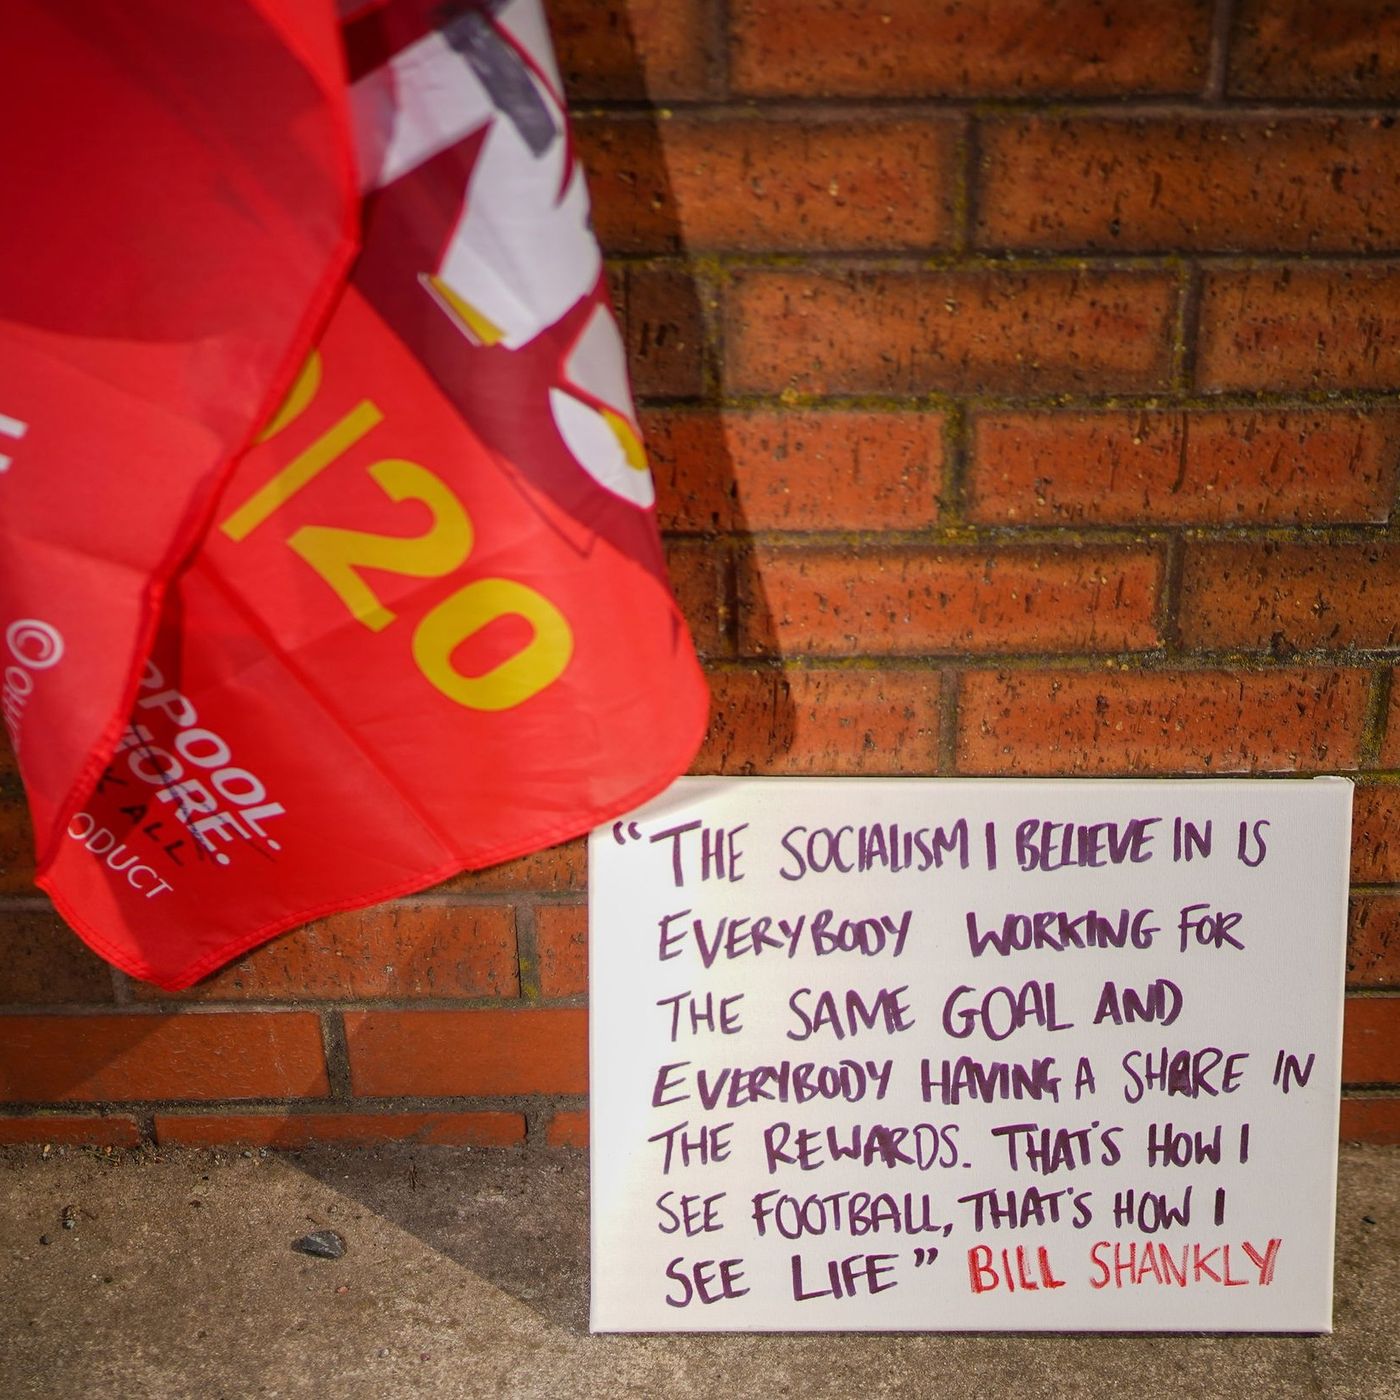 20
©
RPOOL.
ALL
ODUCT
“THE SOCIALISM I BELIEVE IN IS
EVERYBODY WORKING FOR
THE SAME GOAL AND
EVERYBODY HAVING A SHARE IN
THE REWARDS. THAT'S HOW I
SEE FOOTBALL, THAT'S HOW I
SEE LIFE” BILL SHANKLY